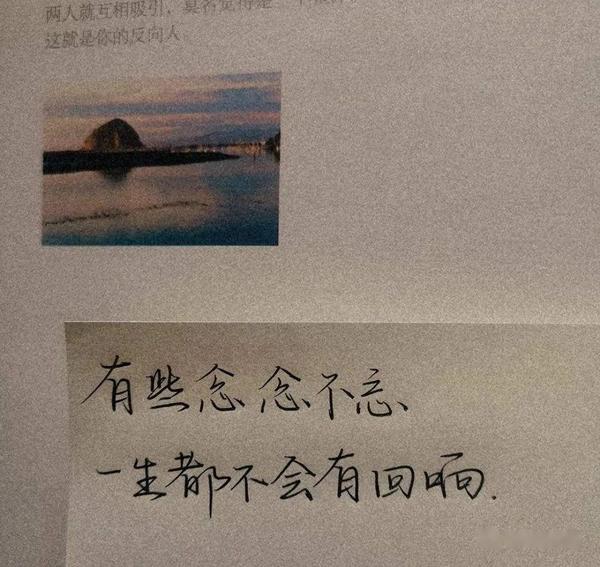 两人就互相吸引，莫名觉得是一个
这就是你的反向人。
有些念念不忘
一生都不会有回响.